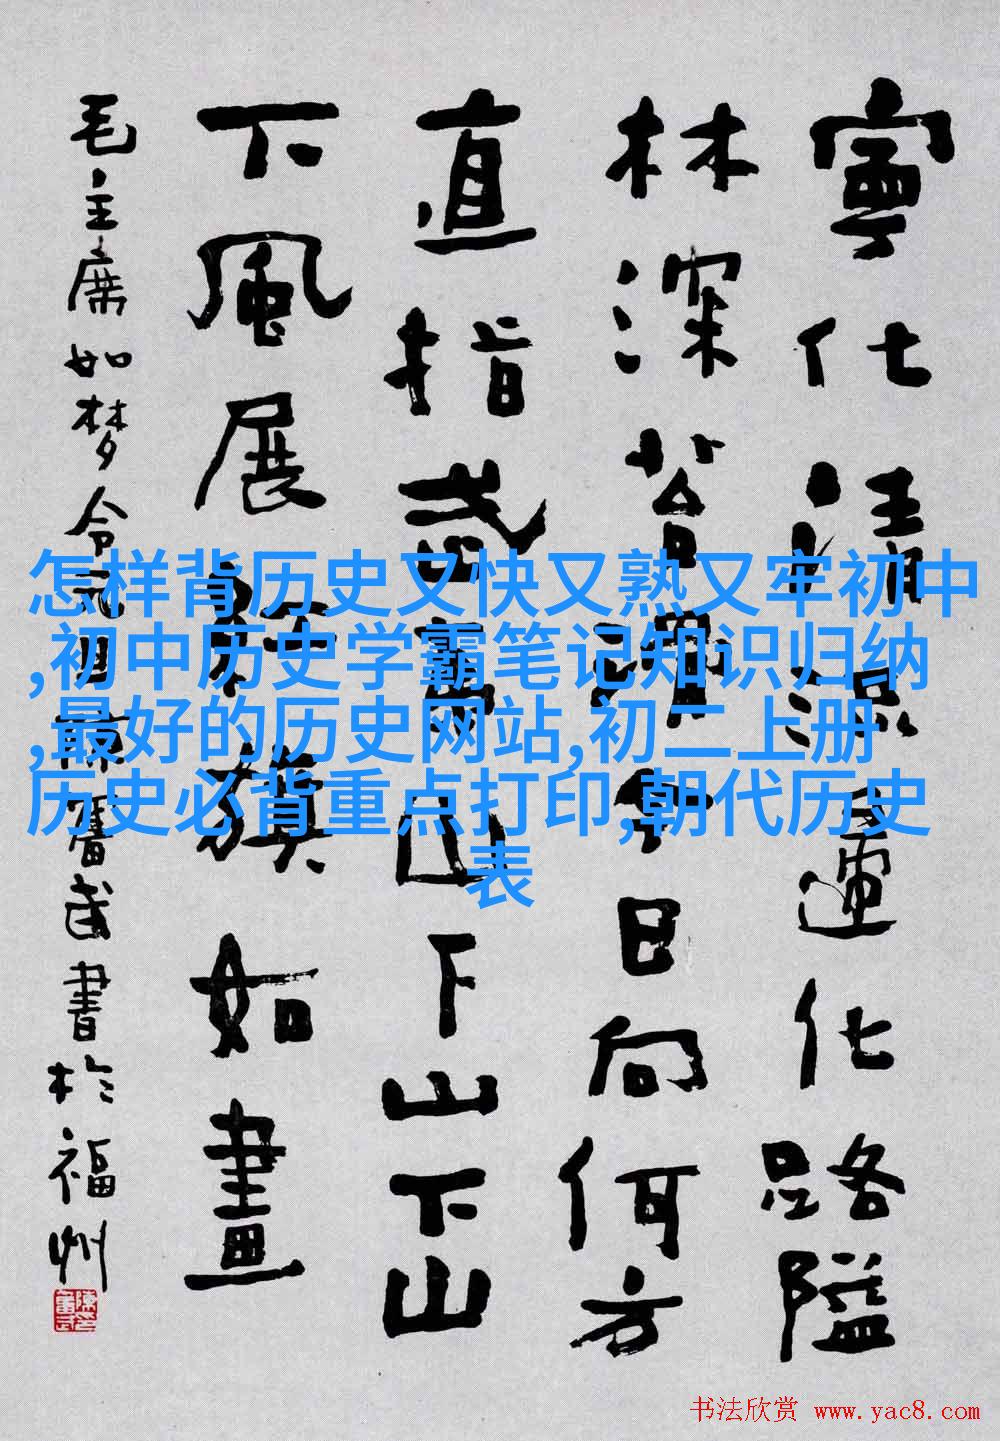 寧化清流化路隘
林深苔滑今日向何方
直指武夷山下山下山
下風展紅旗如畫
毛主席如梦令元旦陳奮武書於福州
怎样背历史又快又熟又牢初中
,初中历史学霸笔记知识归纳
,最好的历史网站,初二上册
历史必背重点打印,朝代历史
表
书法欣赏 www.yac8.com